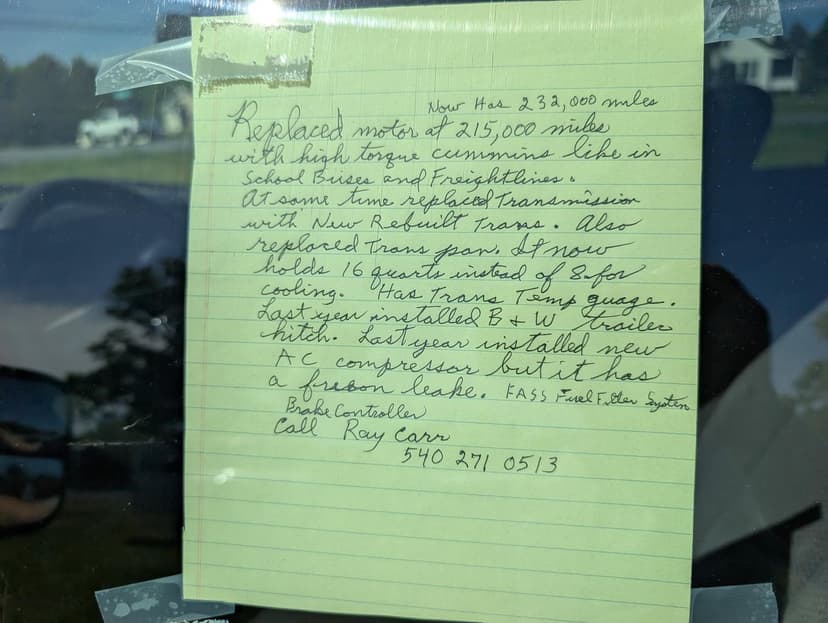 Now Has 232,000 miles
Replaced motor at 215,000 miles
with high torque cummins like in
School Buses and Freightlines.
At same time replaced Transmission
with New Rebuilt Trans. Also
replaced Trans pan. It now
holds 16 quarts instead of 8 for
cooling. Has Trans Temp guage.
Last year installed B & W trailer
hitch. Last year installed new
AC compressor but it has
a freeon leake. FASS Fuel Filter System
Brake Controller
Call Ray Carr
540 271 0513